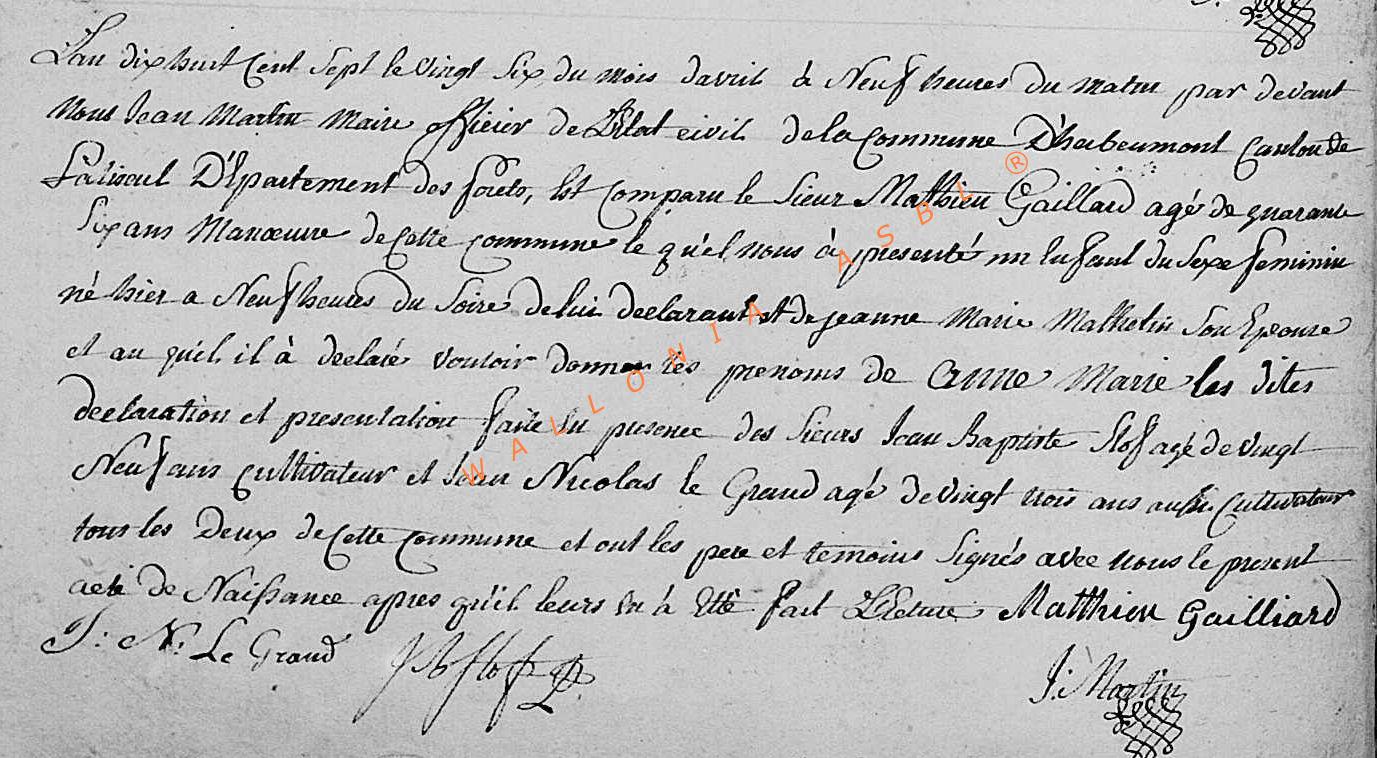 Lan dix huit Cent Sept le vingt Six du mois davril à Neuf heures du matin par devant
Nous Jean Martin Maire officier de L'Etat civil de la commune D'herbeumont Canton de
Paliseul D'Epartement des forets, Est Comparu le Sieur Mathieu Gaillard agé de quarante
Six ans Manœuvre de Cette commune le qu'el nous à presenté un Enfant du Sexe feminin
né hier a Neuf heures du Soire de lui declarant et de jeanne Marie Mathelin Son Epouse
et au qu'el il à declaré vouloir donner les prenoms de anne Marie les dites
declaration et presentation faite En presence des Sieurs Jean Baptiste Slof agé de vingt
Neuf ans Cultivateur et Jean Nicolas le Grand agé de vingt trois ans aussi Cultivateur
tous les Deux de Cette Commune et ont les pere et temoins Signés avec nous le present
acte de Naissance apres qu'il leurs En à Etté fait LEcture Matthieu Gailliard
J: N: Le Grand JB Slof
J: Martin
WALLONIA ASBL ®